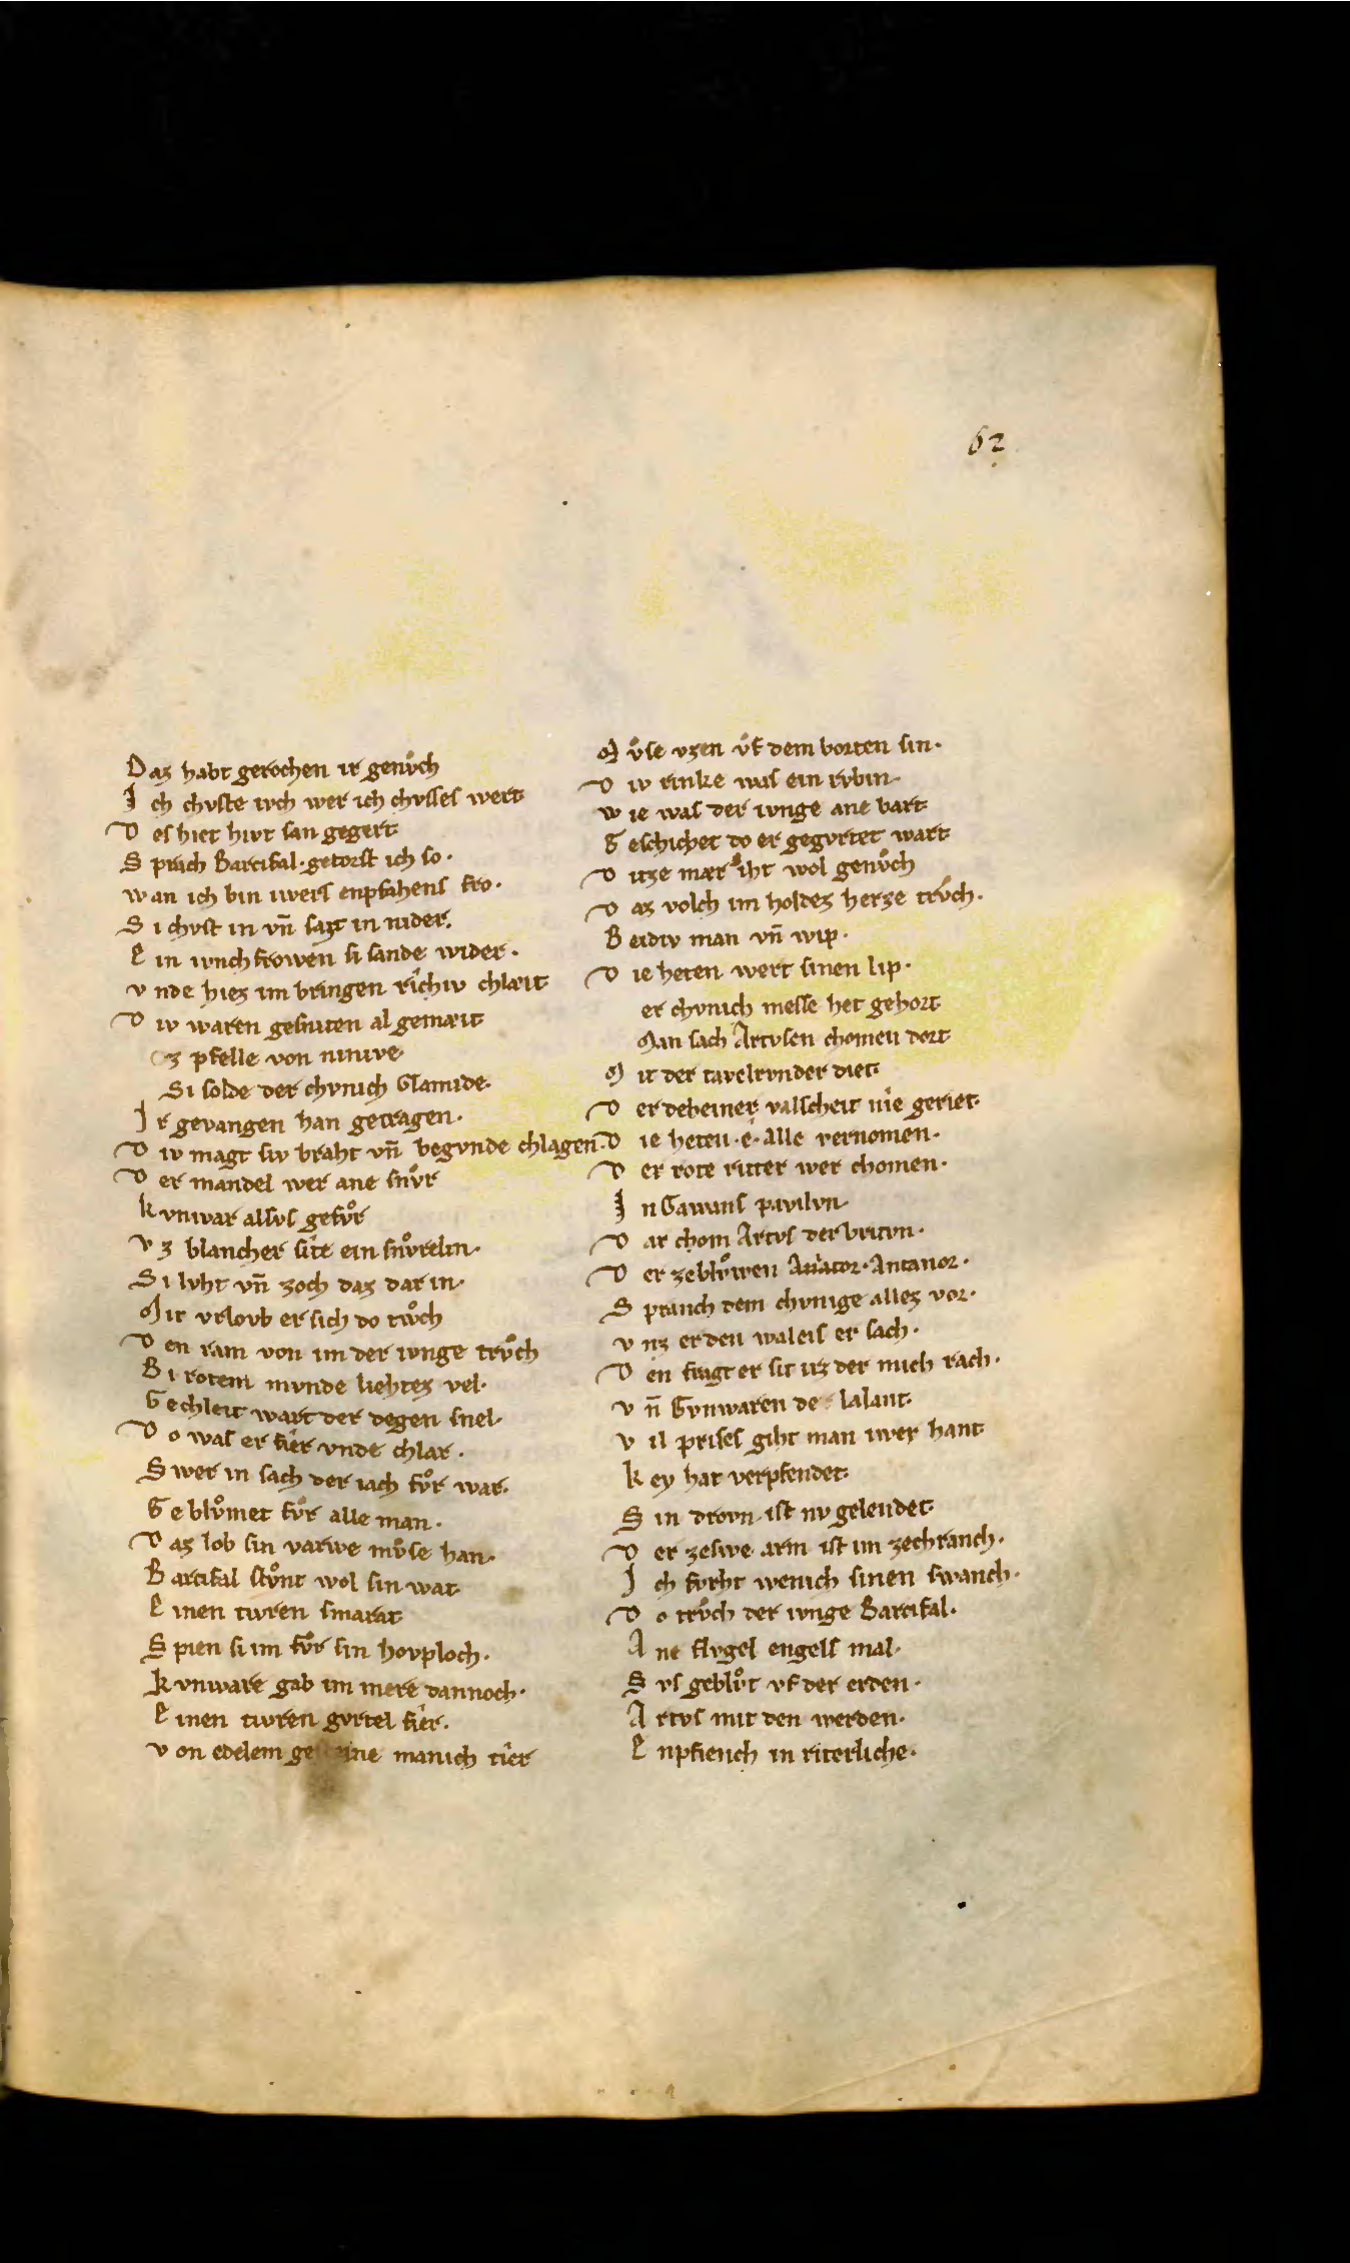 62
Daz habt gerochen ir genuͦch
Ich chuste iuch wer ich chusses wert
Des hiet hivt san gegert
Sprach Parcifal · getorst ich so ·
wan ich bin iwers enpfahens fro ·
Si chvst in vn̄ sazt in nider.
Ein ivnchfrowen si sande wider ·
vnde hiez im bringen rîchiv chlæit
Div waren gesniten al gemæit
z pfelle von ninive
Si solde der chvnich Clamide·
Ir gevangen han getragen ·
Div magt siv braht vn̄ begvnde chlagen·
Der mandel wer ane snuͦr
kvnwar alsvs gefuͦr
Vz blancher sîte ein snuͦrelin·
Si lvht vn̄ zoch daz dar in·
Mit vrlovb er sich do twͦch
Den ram von im der ivnge truͦch
Bi rotem mvnde liehtez vel·
Gechleit wart der degen snel·
Do was er fîer vnde chlar ·
Swer in sach der iach fuͦr war·
Gebluͦmet fuͦr alle man ·
Daz lob sin varwe muͦse han·
Parcifal stuͦnt wol sin wat
Einen tivren smarat
Spien si im fuͦr sin hovploch ·
kvnware gab im mere dannoch·
Einen tivren gvrtel fîer·
von edelem ge ine manich tîer
Muͦse vzen uͦf dem borten sin·
Div rinke was ein rvbin·
wie was der ivnge ane bart
Geschichet do er gegvrtet wart
Ditze mær iht wol genuͦch
Daz volch im holdez herze truͦch ·
Beidiv man vn̄ wip ·
Die heten wert sinen lip ·
er chvnich messe het gehort
Man sach Artvsen chomen dort
Mit der tavelrvnder diet·
Der deheiner valscheit nîe geriet·
Die heten · e · alle vernomen·
Der rote ritter wer chomen·
In Gawans pavilvn·
Dar chom Artvs der britvn ·
Der zebluͦwen Antanor ·
Spranch dem chvnige allez vor·
vnz er den waleis er sach·
Den fragt er sit irz der mich rach ·
vn̄ Gvnwaren de lalant·
vil prises giht man iwer hant
key hat verpfendet·
Sin drovn · ist nv gelendet·
Der zeswe arm ist im zechranch·
Ich fvrht wenich sinen swanch·
Do truͦch der ivnge Parcifal·
Ane flvgel engels mal·
Svs gebluͦt vf der erden ·
Artvs mit den werden·
Enpfiench in riterliche·